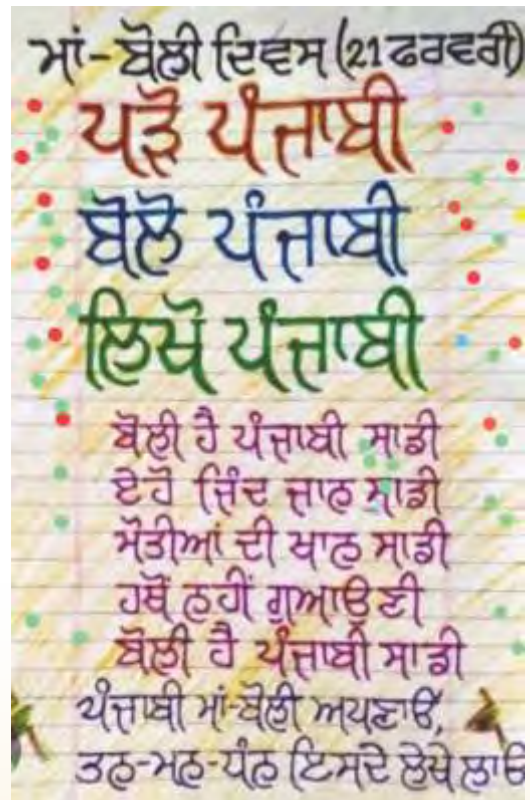 ਮਾਂ-ਬੋਲੀ ਦਿਵਸ (21 ਫਰਵਰੀ)
ਪੜੋ ਪੰਜਾਬੀ
ਬੋਲੋ ਪੰਜਾਬੀ
ਲਿਖੋ ਪੰਜਾਬੀ
ਬੋਲੀ ਹੈ ਪੰਜਾਬੀ ਸਾਡੀ
ਏਹੋ ਜਿੰਦ ਜਾਨ ਸਾਡੀ
ਮੋਤੀਆਂ ਦੀ ਖਾਨ ਸਾਡੀ
ਹਥੋਂ ਨਹੀਂ ਗੁਆਉਣੀ
ਬੋਲੀ ਹੈ ਪੰਜਾਬੀ ਸਾਡੀ
ਪੰਜਾਬੀ ਮਾਂ-ਬੋਲੀ ਅਪਣਾਓ,
ਤਨ-ਮਨ-ਧੰਨ ਇਸਦੇ ਲੇਖੇ ਲਾਓ